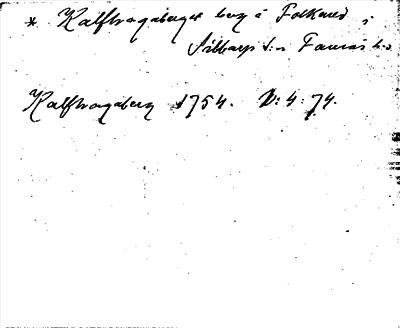 * Kalfhagaberget berg å Folkared i
Sibbarps s:n Faurås h:d
Kalfhagaberg 1754. V: 4: 74.